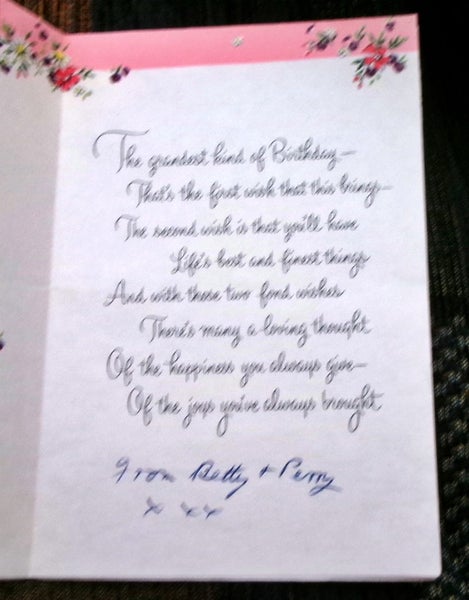 The grandest kind of Birthday—
That's the first wish that this brings—
The second wish is that you'll have
Life's best and finest things
And with these two fond wishes
There's many a loving thought
Of the happiness you always give—
Of the joys you've always brought
From Betty + Perry
x xx